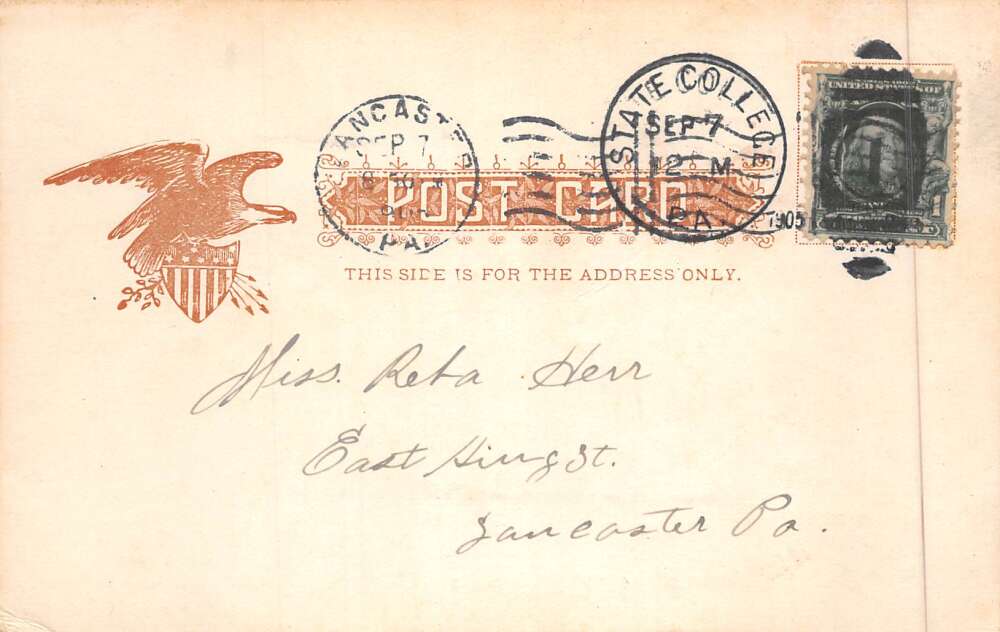 LANCASTER
SEP 7
PA.
STATE COLLEGE
SEP 7
12 M
PA.
1905
UNITED STATES OF
1
POST CARD
THIS SIDE IS FOR THE ADDRESS ONLY.
Miss. Reba Herr
East King St.
Lancaster Pa.